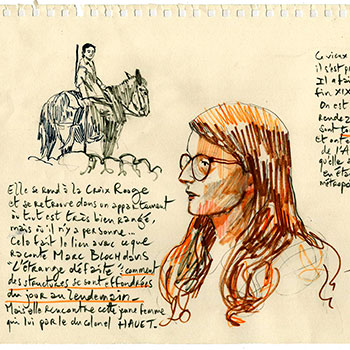 Elle se rend à la Croix Rouge
et se retrouve dans un appartement
où tt est très bien rangé,
mais où il n'y a personne...
Cela fait le lien avec ce que
raconte Marc Bloch dans
"L'étrange défaite": comment
des structures se sont effondrées
du jour au lendemain –
Mais elle rencontre cette jeune femme
qui lui parle du colonel HAUET.
Ce vieux
il s'est p
Il a fai
fin XIX
On est
Rendez
Sont to
Et ont e
de l'A
qu'elle a
En éta
métropo